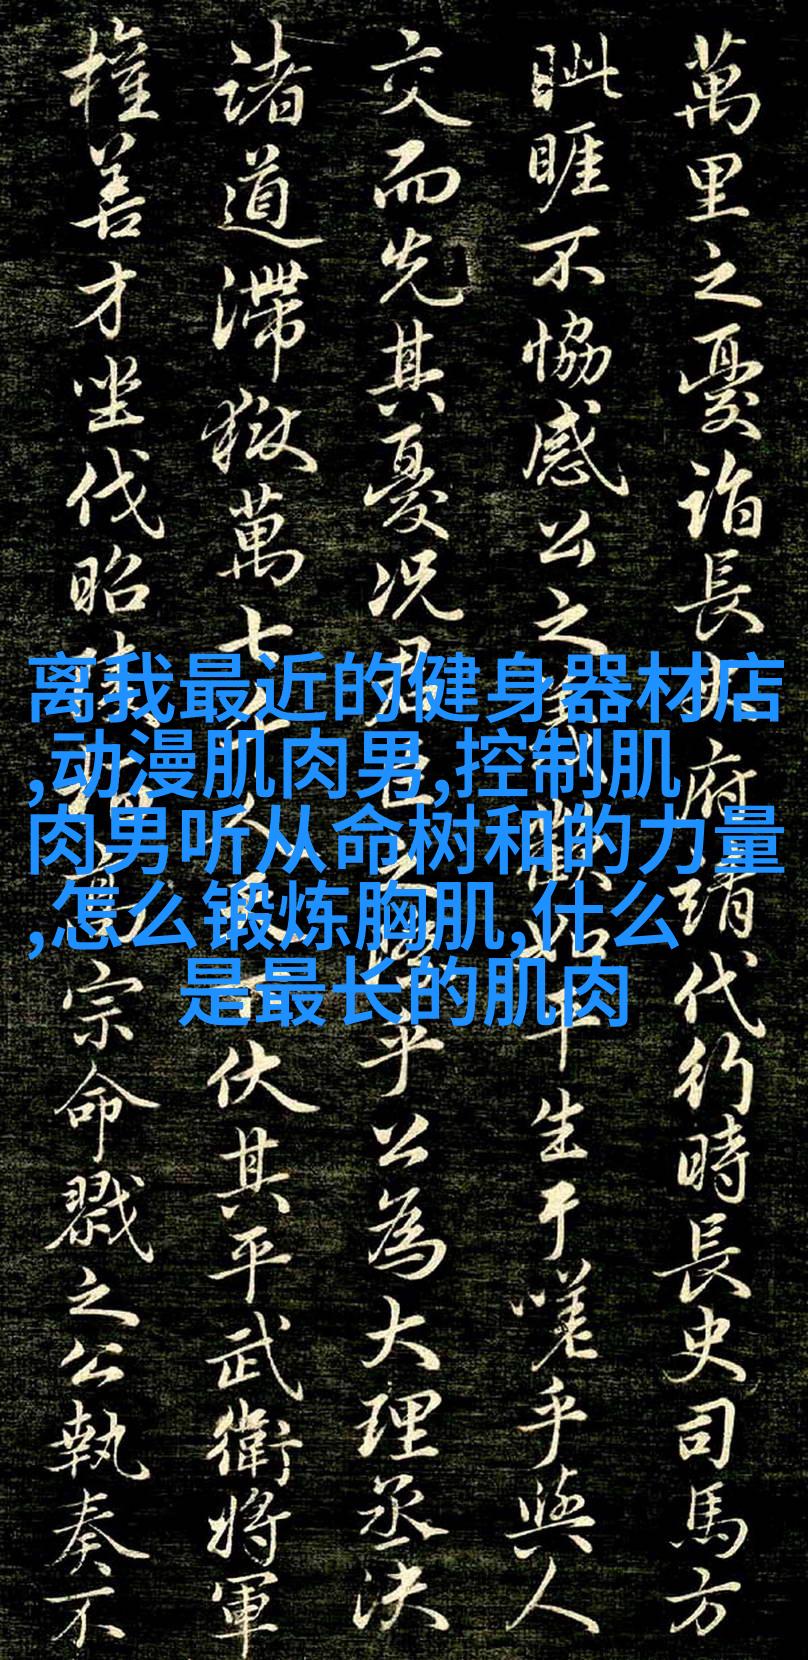 萬里之憂詣長史府請代行時長史司馬方
眦睚不協感公之義歡如平生于嗟乎與人
交而先其憂況君臣之際乎公為大理丞決
諸道滯獄萬七千人天下伏其平武衛將軍
權善才坐伐昭陵柏高宗命戮之公執奏不
离我最近的健身器材店
,动漫肌肉男,控制肌
肉男听从命树和的力量
,怎么锻炼胸肌,什么
是最长的肌肉